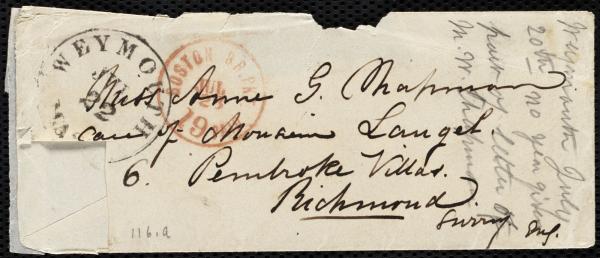 WEYMO
BOSTON BR. PK
Miss Anne G. Chapman
care of Monsieur Laugel.
6. Pembroke Villas.
Richmond
Surrey Eng.
116.a
Weymouth July
20th no year given
part of letter of
M. W. Chapman